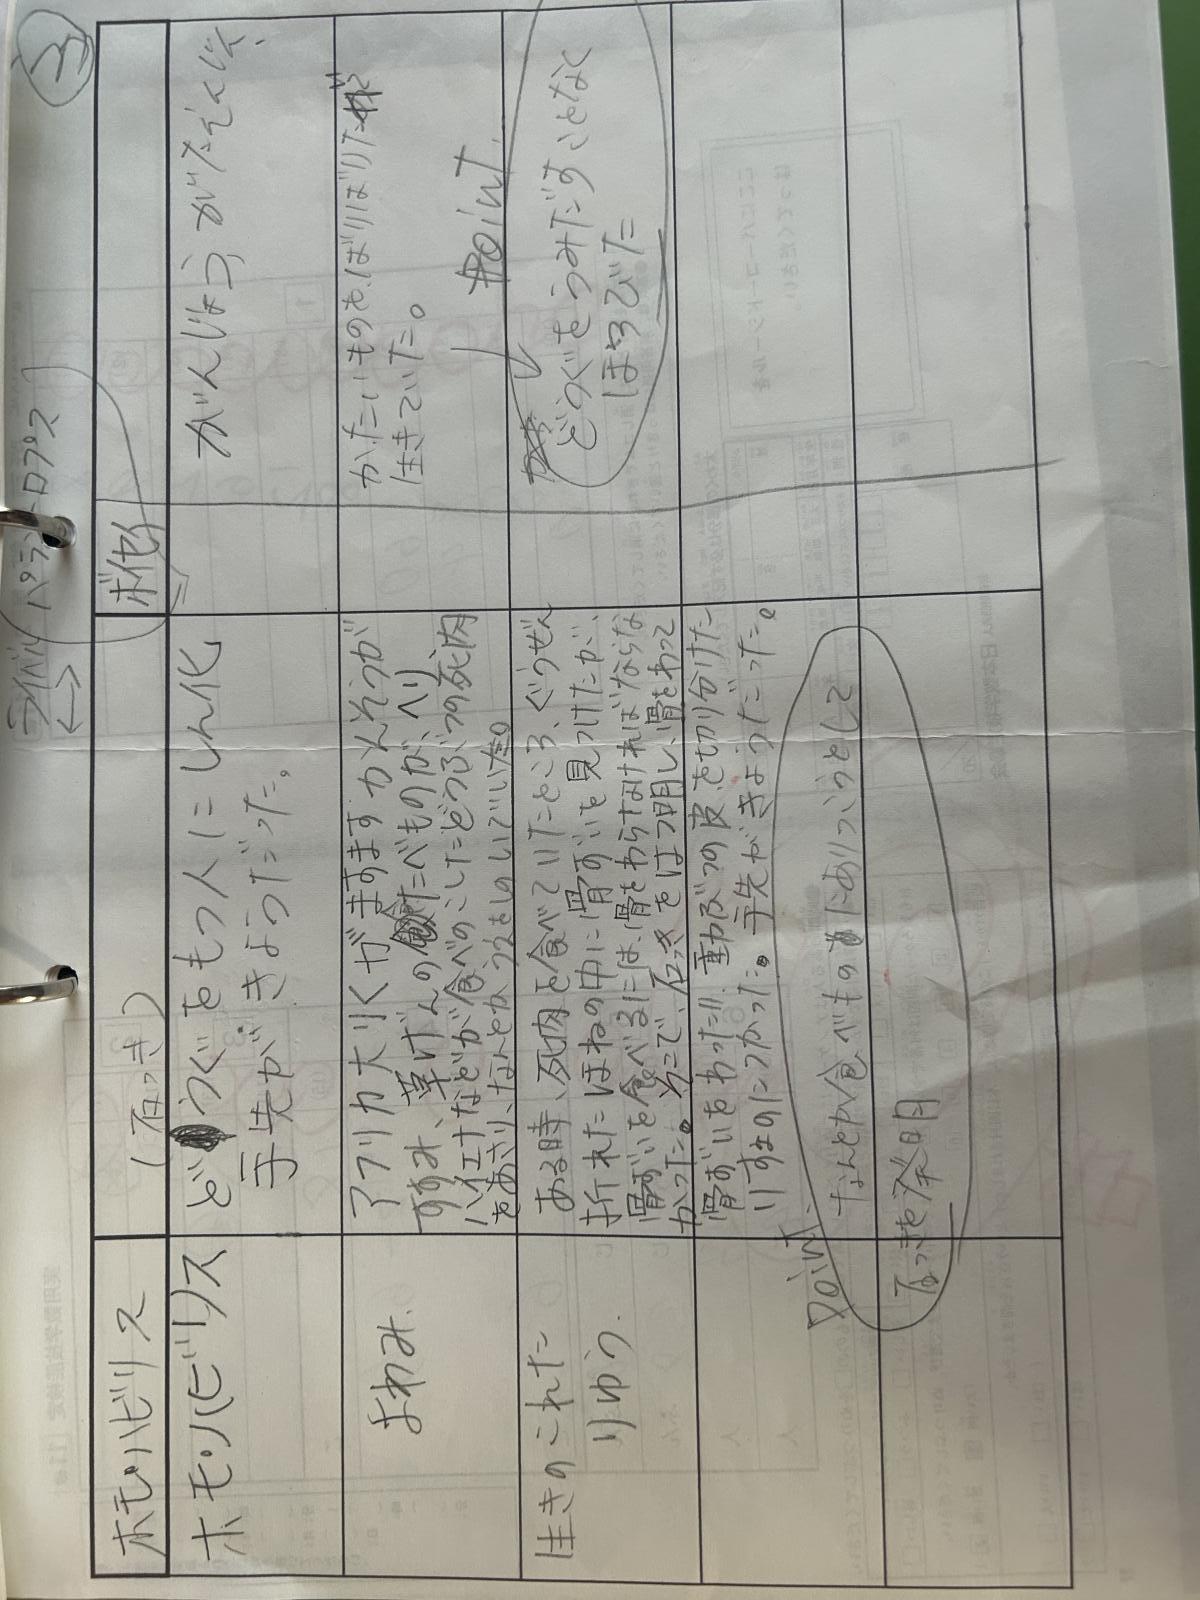 ③
ライバル パラントロプス
ホモ・ハビリス
(石っき)
ボイセイ
ホモ・ハビリス
どうぐをもつ人にしん化
手先がきようだった。
がんじょう
よわみ
アフリカ大りくがますますかんそうが
すすみ、草げんの食べものが、へり
ハイエナなどが食べのこしたどうぶつの死肉
をあさり、なんとかうえをしのいでいた。
かたいものも、ばりばりたべて
生きていた。
Point
生きのこれた
りゆう
ある時、死肉を食べていたところ、ぐうぜん
折れたほねの中に骨ずいを見つけたが、
骨ずいを食べるには、骨をわらなければならな
かった。そこで、石っきをはつ明し、骨をわって
どうぐをうみだすことなく
ほろびた
骨ずいをわったり、動ぶつの皮を切り分けた
りするのにつかった。手先がきようだった。
Point
なんとか食べものにありつこうとして
石っきを発明